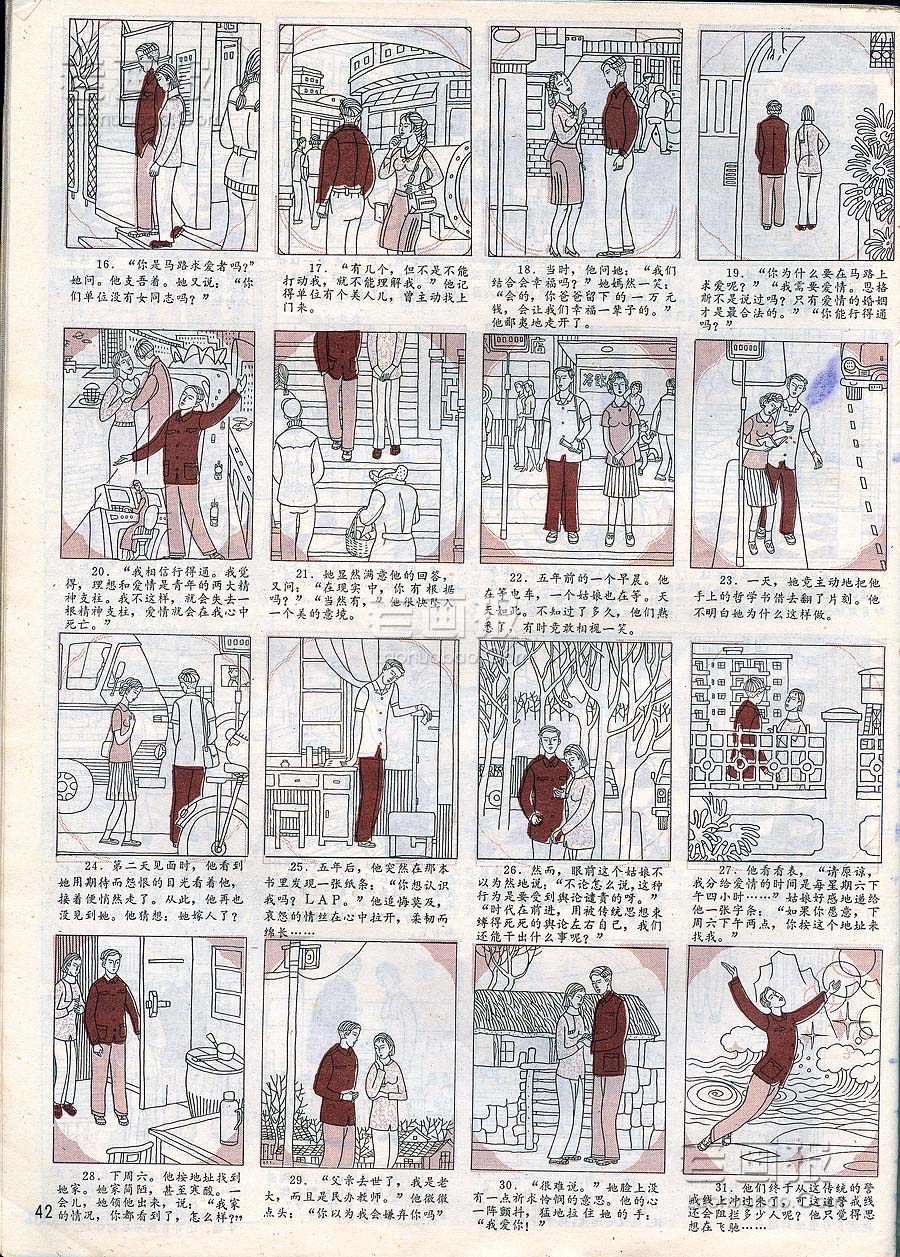 16. “你是马路求爱者吗?”
她问。他支吾着。她又说：“你
们单位没有女同志吗？”
17. “有几个，但不是不能
打动我，就不能理解我。”他记
得单位有个美人儿，曾主动找上
门来。
18. 当时，他问她：“我们
结合会幸福吗？”她嫣然一笑：
“会的，你爸爸留下的一万元
钱，会让我们幸福一辈子的。”
他鄙夷地走开了。
19. “你为什么要在马路上
求爱呢？”“我需要爱情。恩格
斯不是说过吗？只有爱情的婚姻
才是最合法的。”“你能行得通
吗？”
20. “我相信行得通。我觉
得，理想和爱情是青年的两大精
神支柱。我不这样，就会失去一
根精神支柱，爱情就会在我心中
死亡。”
21. 她显然满意他的回答，
又问：“在现实中，你有根据
吗？”“当然有，”他很快坠入
一个美的意境。
22. 五年前的一个早晨。他
在等电车，一个姑娘也在等。天
天如此。不知过了多久，他们熟
悉了，有时竟敢相视一笑。
23. 一天，她竟主动地把他
手上的哲学书借去翻了片刻。他
不明白她为什么这样做。
24. 第二天见面时，他看到
她用期待而怨恨的目光看着他，
接着便悄然走了。从此，他再也
没见到她。他猜想：她嫁人了？
25. 五年后，他突然在那本
书里发现一张纸条：“你想认识
我吗？LAP。”他追悔莫及，
哀怨的情丝在心中拉开，柔韧而
绵长……
26. 然而，眼前这个姑娘不
以为然地说，“不论怎么说，这种
行为是要受到舆论谴责的呀。”
“时代在前进，用被传统思想束
缚得死死的舆论左右自己，我们
还能干出什么事呢？”
27. 他看看表，“请原谅，
我分给爱情的时间是每星期六下
午四小时……”姑娘好感地递给
他一张字条：“如果你愿意，下
周六下午两点，你按这个地址来
找我。”
28. 下周六。他按地址找到
她家。她家简陋，甚至寒酸。一
会儿，她领他出来，说：“我家
的情况，你都看到了，怎么样?”
29. “父亲去世了，我是老
大，而且是民办教师。”他微微
点头：“你以为我会嫌弃你吗”
30. “很难说。”她脸上没
有一点祈求怜悯的意思。他的心
一阵颤抖，猛地拉住她的手：
“我爱你！”
31. 他们终于从这传统的警
戒线上冲过来了，可这道警戒线
还会阻拦多少人呢？他只觉得思
想在飞驰……
42